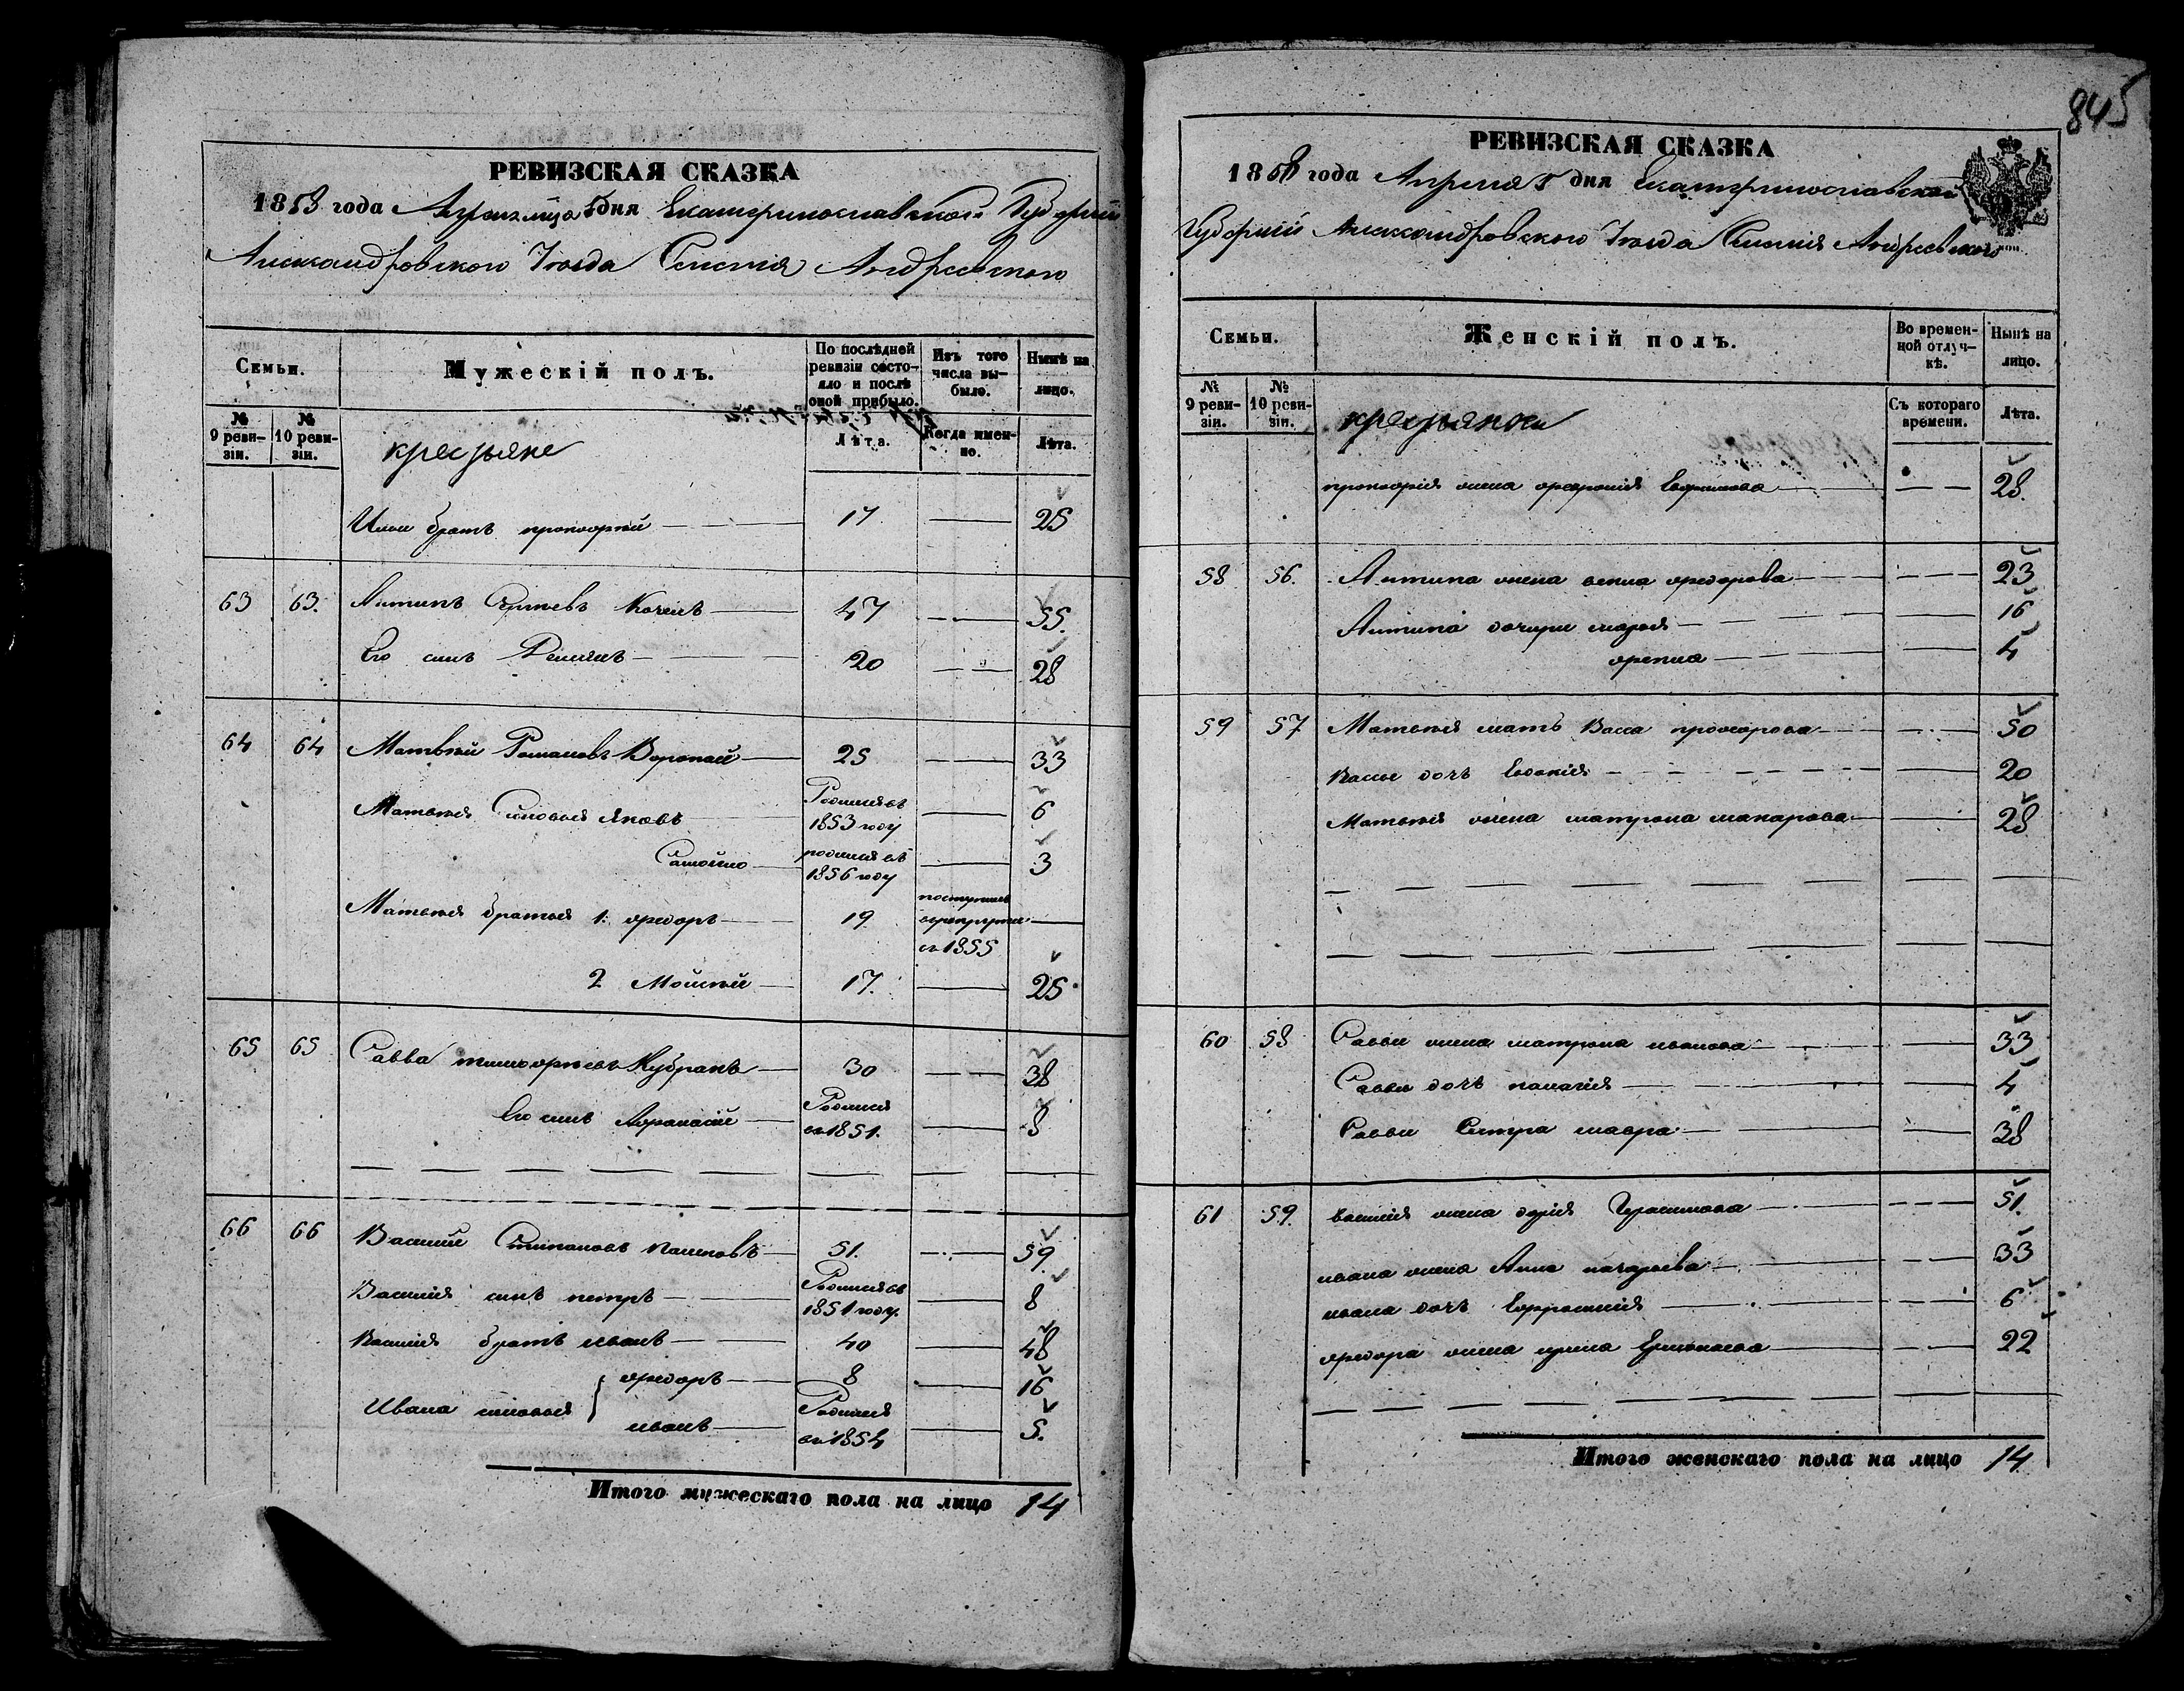 845
РЕВИЗСКАЯ СКАЗКА
1858 года Апреля 5 дня Екатеринославской Губерніи
Александровского Уезда Селенія Андреевского
Семьи.
Мужескій полъ.
По послѣдней ревизіи состояло и послѣ оной прибыло.
Изъ того числа выбыло.
Нынѣ на лицо.
№ 9 ревизіи.
№ 10 ревизіи.
крестьяне
Лѣта.
Когда именно.
Лѣта.
Ильи братъ прокофий 17 25
63 63. Антипъ Сергѣевъ 47 55.
Его синъ Демянъ 20 28
64 64 Матвѣй Романовъ Воропай 25 33
Матвѣя синовья Яковъ Родился въ 1853 году 6
Самойло родился въ 1856 году 3
Матвѣя братья 1: федоръ 19 поступилъ врекруты въ 1855
2 Мойсѣй 17. 25
65 65 Савва тимофѣевъ Кубракъ 30 38
Его синъ Афанасій Родился въ 1851. 8
66 66 Василий Степановъ 51. 59.
Василія синъ петръ Родился въ 1851 году. 8
Василія братъ иванъ 40 48
Ивана синовья федоръ 8 16
иванъ Родился въ 1854 5.
Итого мужескаго пола на лицо 14
РЕВИЗСКАЯ СКАЗКА
1858 года Апреля 5 дня Екатеринославской
Губерній Александровского Уезда Селенія Андреевского
Семьи.
Женскій полъ.
Во временной отлучкѣ.
Нынѣ на лицо.
№ 9 ревизіи.
№ 10 ревизіи.
крестьянки
Съ котораго времени.
Лѣта.
прокофія жена Ефимова 28.
58 56. Антипа жена федорова 23
Антипа дочери марья 16
4
59 57 Матвѣя мать Васса прохорова 50
Вассы дочъ Евдокія 20
Матвѣя жена матрона макарова 28
60 58 Саввы жена матрона иванова 33
Саввы дочъ палагія 4
Саввы Сестра мавра 38
61 59. василія жена Герасимова 51.
ивана жена Анна 33
ивана дочъ Ефросинія 6
федора жена ирина 22
Итого женскаго пола на лицо 14